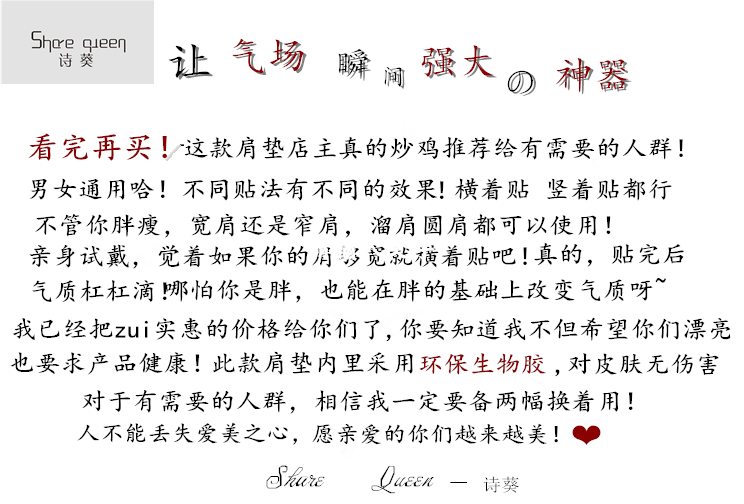 Share queen
诗葵
让气场瞬间强大の神器
看完再买！这款肩垫店主真的炒鸡推荐给有需要的人群！
男女通用哈！不同贴法有不同的效果！横着贴 竖着贴都行
不管你胖瘦，宽肩还是窄肩，溜肩圆肩都可以使用！
亲身试戴，觉着如果你的肩够宽就横着贴吧！真的，贴完后
气质杠杠滴！哪怕你是胖，也能在胖的基础上改变气质呀~
我已经把zui实惠的价格给你们了，你要知道我不但希望你们漂亮
也要求产品健康！此款肩垫内里采用环保生物胶，对皮肤无伤害
对于有需要的人群，相信我一定要备两幅换着用！
人不能丢失爱美之心，愿亲爱的你们越来越美！❤
Share Queen — 诗葵